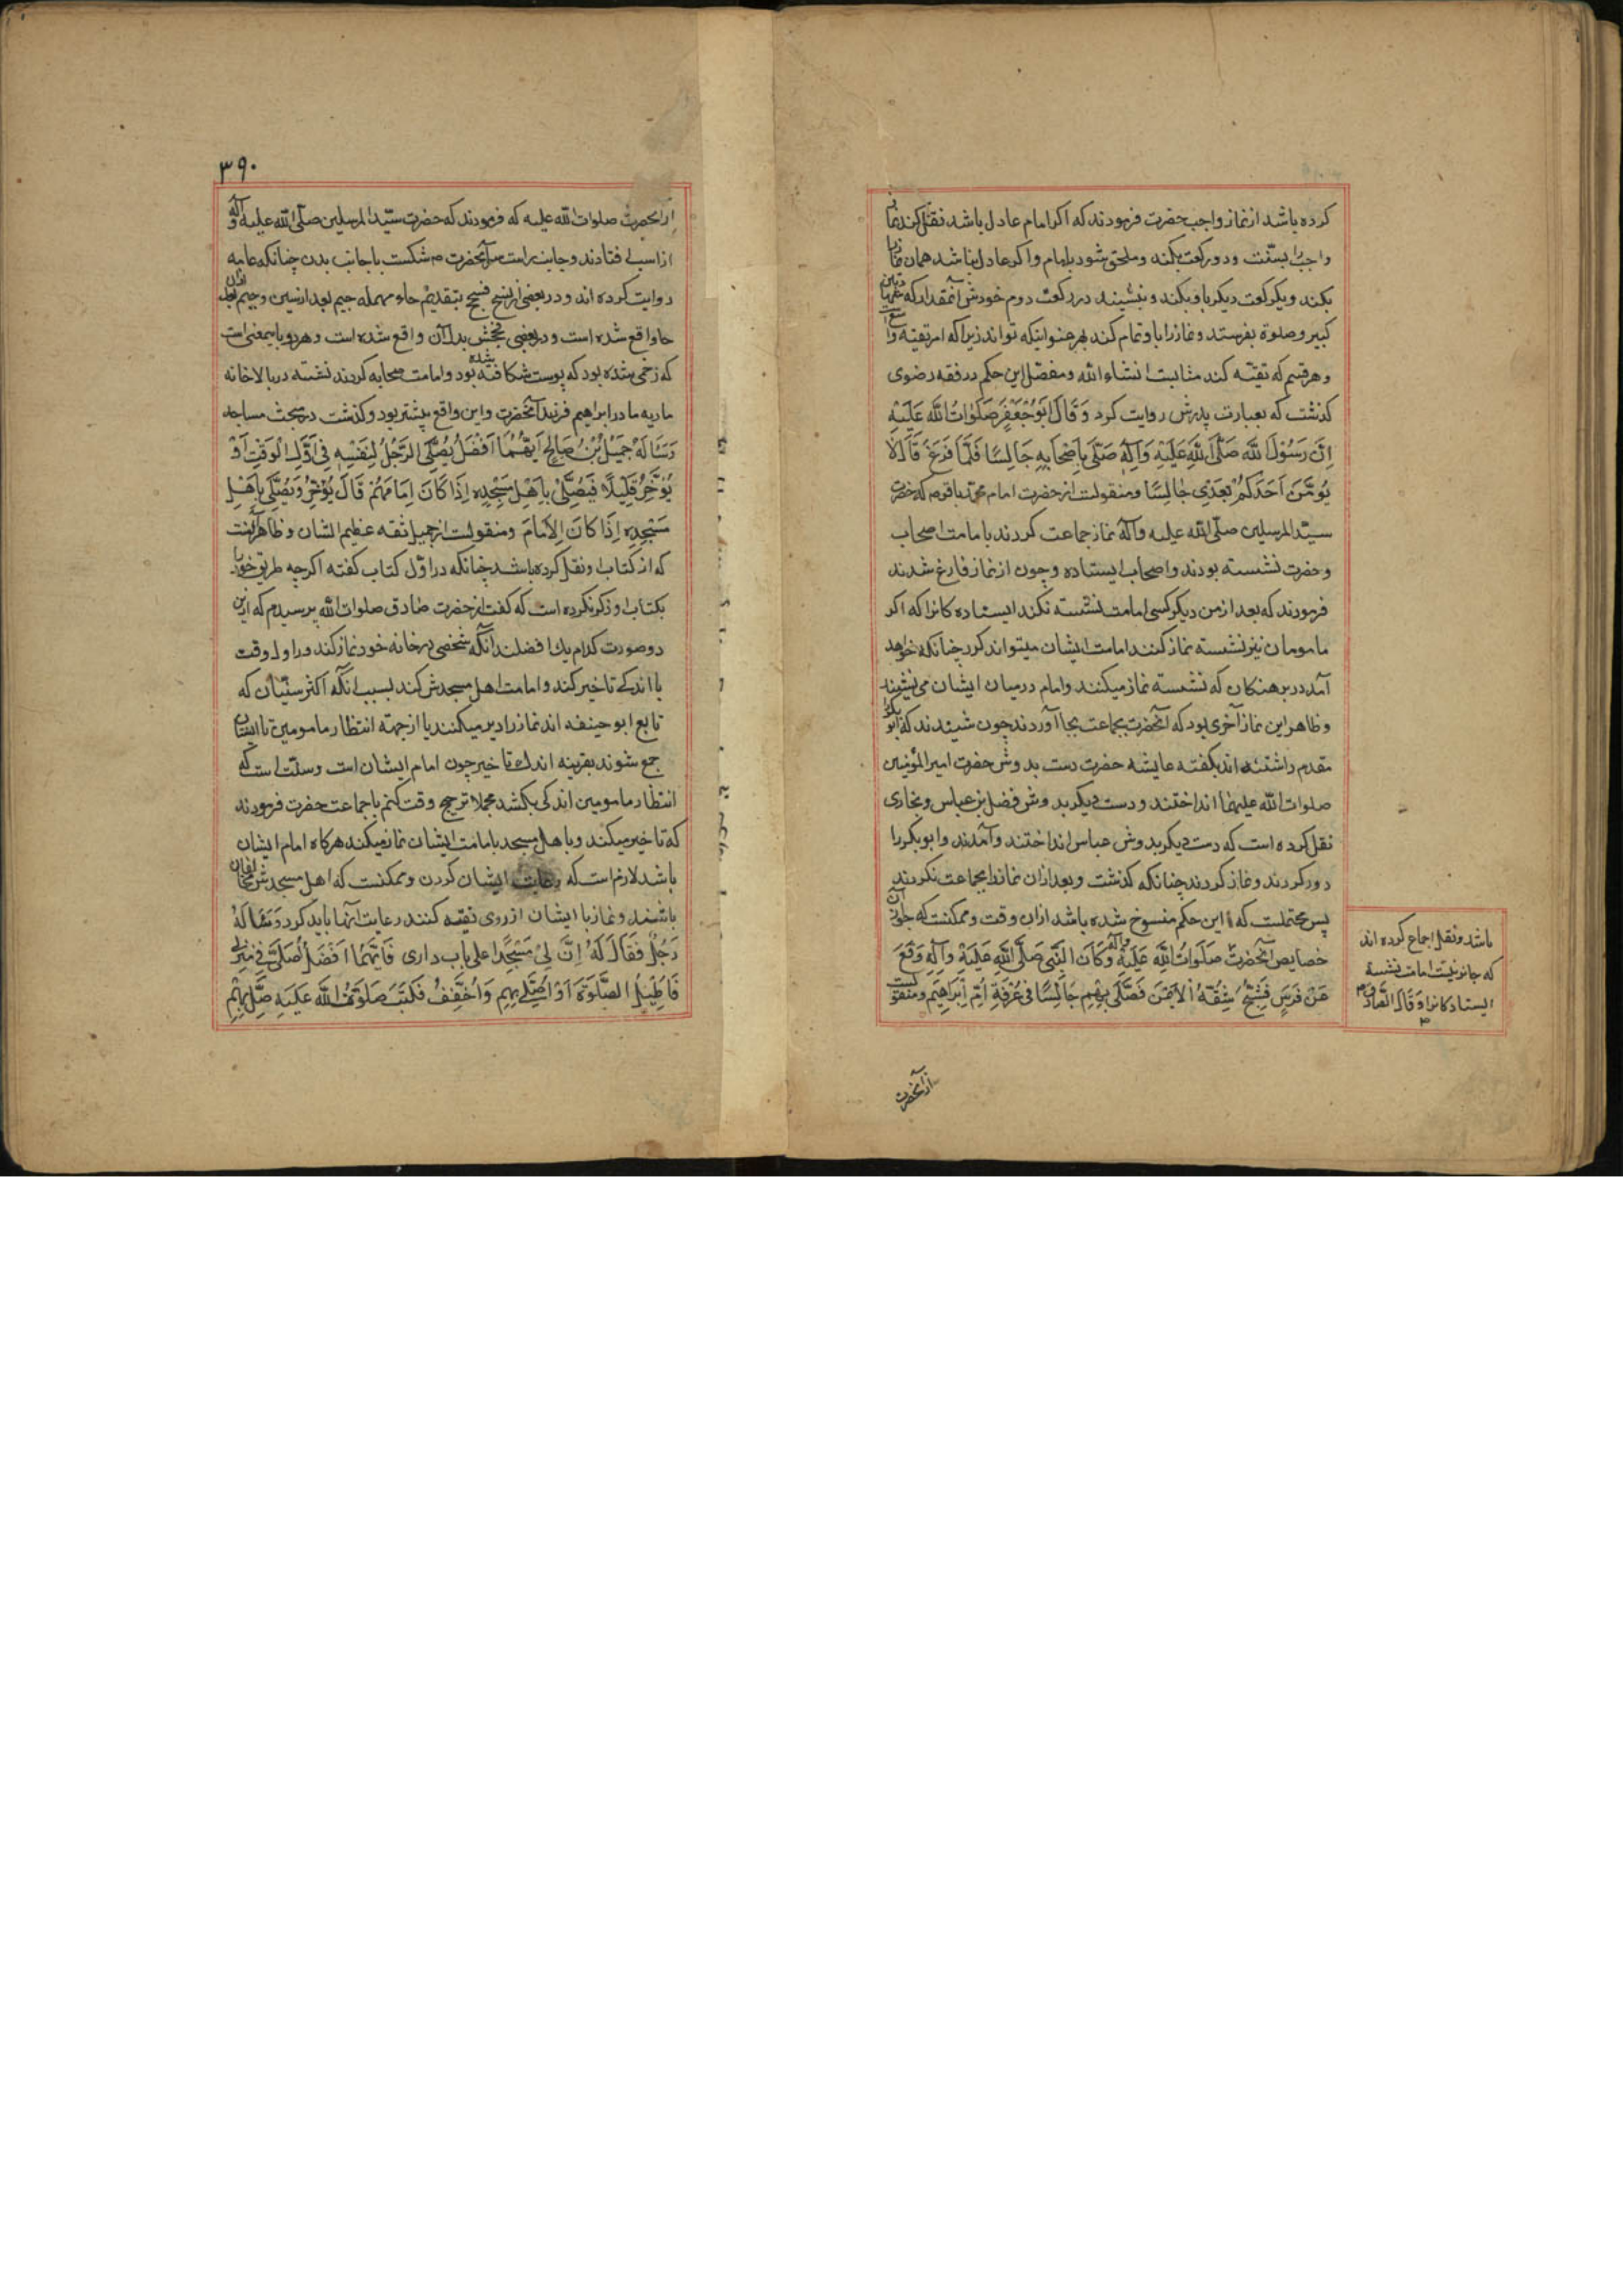 کرده باشد از نماز واجب حضرت فرمودند که اکر امام عادل باشد نقل کند نماز
واجب را بسنّت و دو رکعت بکند و ملحق شود بامام و اکر عادل نباشد همان نماز را
بکند و یکرکعت دیکر با و بکند و بنشیند در رکعت دوم خودش آنمقدار که
کبیر و صلوة بفرستد و نماز را با و تمام کند بهر عنوانیکه تواند زیرا که امر تقیّه واسع است
و هر قسم که تقیّه کند مثابست انشاء الله و مفصّل این حکم در فقه رضوی
کذشت که بعبارت پدرش روایت کرد وَ قَالَ اَبُو جَعْفَرٍ صَلَوٰاتُ اللّٰه عَلَیْهِ
اِنَّ رَسُوْلَ اللّٰهِ صَلَّی اللّٰهِ عَلَیْهِ وَ آلِهِ صَلَّی بِاَصْحَابِهِ جَالِسًا فَلَمَّا فَرَغَ قَالَ لَا
یَؤُمَّنَ اَحَدَکُمْ بَعْدِی جٰالِسًا و منقولست از حضرت امام محمّد باقر م که حضرت
سیّد المرسلین صلّی الله علیه و آله نماز جماعت کردند بامامت اصحاب
و حضرت نشسته بودند و اصحاب ایستاده و چون از نماز فارغ شدند
فرمودند که بعد از من دیکر کسی امامت نشسته نکند ایستاده کانرا که اکر
مامومان نیز نشسته نماز کنند امامت ایشان میتواند کرد چنانکه خواهد
آمد در برهنکان که نشسته نماز میکنند و امام در میان ایشان می نشیند
و ظاهر این نماز آخری بود که آنحضرت بجماعت بجا آوردند چون شنیدند که ابو بکر را
مقدم داشته اند بکفته عایشه حضرت دست بدوش حضرت امیر المؤنین
صلوات الله علیهما انداختند و دست دیکر بدوش فضل بن عباس و بخاری
نقل کرده است که دست دیکر بدوش عباس انداختند و آمدند و ابو بکر را
دور کردند و نماز کردند چنانکه کذشت و بعد ازان نماز را بجماعت نکردند
پس محتملست که این حکم منسوخ شده باشد ازان وقت و ممکنست که جواز آن
خصایص آنحضرت صَلَوَاتُ اللَّهِ عَلَیْهِ و آله وَ کَانَ النَّبِی صَلَّی اللَّهِ عَلَیْهِ وَآلِهِ وَقَعَ
عَنْ فَرَسٍ فَشُجَّ شِقُّهُ الْاَیْمَنَ فَصَلَّی بِهِمْ جَالِسًا فی غُرْفَةِ اُمِّ اِبْرَاهِیْمَ و منقولست
باشد و نقل اجماع کرده اند
که جایز نیست امامت نشسته
ایستاد کانرا وَ قَالَ الصَّادِقُ م
از آنحضرت
٣٩٠
از آنحضرت صلوات الله علیه که فرمودند که حضرت سیّد المرسلین صلّی الله علیه و آله
از اسب افتادند و جانب راست آنحضرت م شکست با جانب بدن چنانکه عامه
روایت کرده اند و در بعضی از نسخ فسحج بتقدیم حاء مهمله جیم بعد از سین و جیم بعد ازان
حا واقع شده است و در بعضی بخش بدل آن واقع شده است و هر دو باینمعنی است
که زخمی شده بود که پوست شکافته شده بود و امامت صحابه کردند نشسته در بالاخانه
ماریه مادر ابراهیم فرزند آنحضرت و این واقع پیشتر بود و کذشت در بحث مساجد
وَسَأَلَهُ جَمِیْلُ بْنُ صَالِحٍ اَیُّهُمَا اَفْضَلُ یُصَلِّی الرَّجُلُ لِنَفْسِهِ فِی اَوَّلِ الْوَقْتِ اَوْ
یُؤَخِّرُ قَلِیْلًا فَیُصَلِّیْ بِاَهْلِ مَسْجِدِهِ اِذَا کَانَ اِمَامَهُمْ قَالَ یُؤَخِّرُ وَ یُصَلِّی بِاَهْلِ
مَسْجِدِه اِذَا کَانَ الْاِمَامَ و منقولست از جمیل ثقه عظیم الشان و ظاهر آنست
که از کتاب او نقل کرده باشد چنانکه در اوّل کتاب کفته اکرچه طریق خود را
بکتاب او ذکر نکرده است که کفت از حضرت صادق صلوات الله پرسیدم که ازین
دو صورت کدام یك افضلند آنکه شخصی در خانه خود نماز کند در اول وقت
یا اندکی تاخیر کند و امامت اهل مسجدش کند بسبب انکه اکثر سنّیان که
تابع ابو حنیفه اند نماز را دیر میکنند یا از جهة انتظار مامومین تا ایشان
جمع شوند بقرینه اندك تاخیر چون امام ایشان است و سنّت است که
انتظار مامومین اندکی بکشد مجملا ترجیح وقت کنم یا جماعت حضرت فرمودند
که تاخیر میکند و با هل مسجد بامامت ایشان نماز میکند هرکاه امام ایشان
باشد لازم است که رعایت ایشان کردن و ممکنست که اهل مسجدش مخالفان
باشند و نماز با ایشان از روی تقیه کنند رعایت آنها باید کرد وَ سَأَلَهُ
رَجُلٌ فَقَالَ لَهُ اِنَّ لِیْ مَسْجِدًا علی باب داری فَاَیُّهُمَا اَفْضَلُ اُصَلِّی فِی مَنْزِلِی
فَاُطِیْلُ الصَّلٰوةَ اَوْ اُصَلِّی بِهِمْ وَ اُخَفِّفُ فَکَتَبَ صَلَوٰتُ اللّٰه عَلَیْهِ صَلِّ بِهِمْ